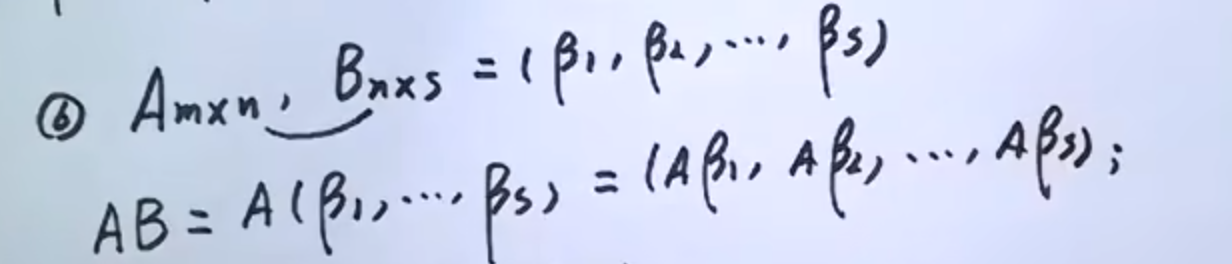 ⑥ Aₘₓₙ, Bₙₓₛ = (β₁, β₂, ⋯, βₛ)
AB = A(β₁, ⋯, βₛ) = (Aβ₁, Aβ₂, ⋯, Aβₛ);